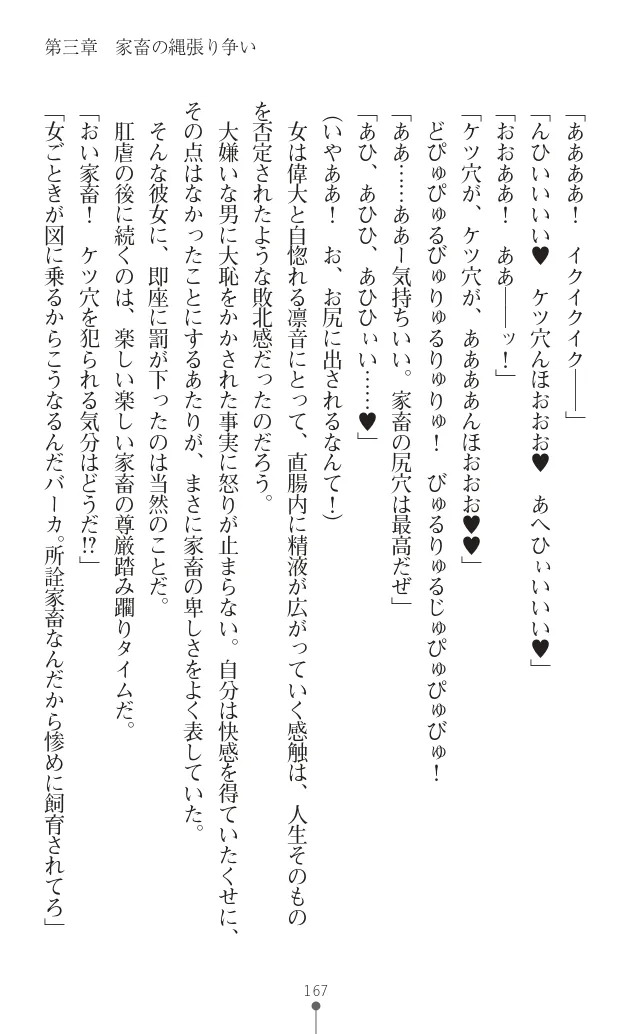 第三章　家畜の縄張り争い
「ああああ！　イクイクイク――」
「んひいいいい♥　ケツ穴んほおおお♥　あへひぃいいい♥」
「おおああ！　ああ――ッ！」
「ケツ穴が、ケツ穴が、ああああんほおおお♥♥」
どぴゅぴゅるびゅりゅるりゅりゅ！　びゅるりゅるじゅぴゅぴゅびゅ！
「ああ……ああー気持ちいい。家畜の尻穴は最高だぜ」
「あひ、あひひ、あひひぃい……♥」
（いやああ！　お、お尻に出されるなんて！）
女は偉大と自惚れる凛音にとって、直腸内に精液が広がっていく感触は、人生そのもの
を否定されたような敗北感だったのだろう。
大嫌いな男に大恥をかかされた事実に怒りが止まらない。自分は快感を得ていたくせに、
その点はなかったことにするあたりが、まさに家畜の卑しさをよく表していた。
そんな彼女に、即座に罰が下ったのは当然のことだ。
肛虐の後に続くのは、楽しい楽しい家畜の尊厳踏み躙りタイムだ。
「おい家畜！　ケツ穴を犯られる気分はどうだ!?」
「女ごときが図に乗るからこうなるんだバーカ。所詮家畜なんだから惨めに飼育されてろ」
167